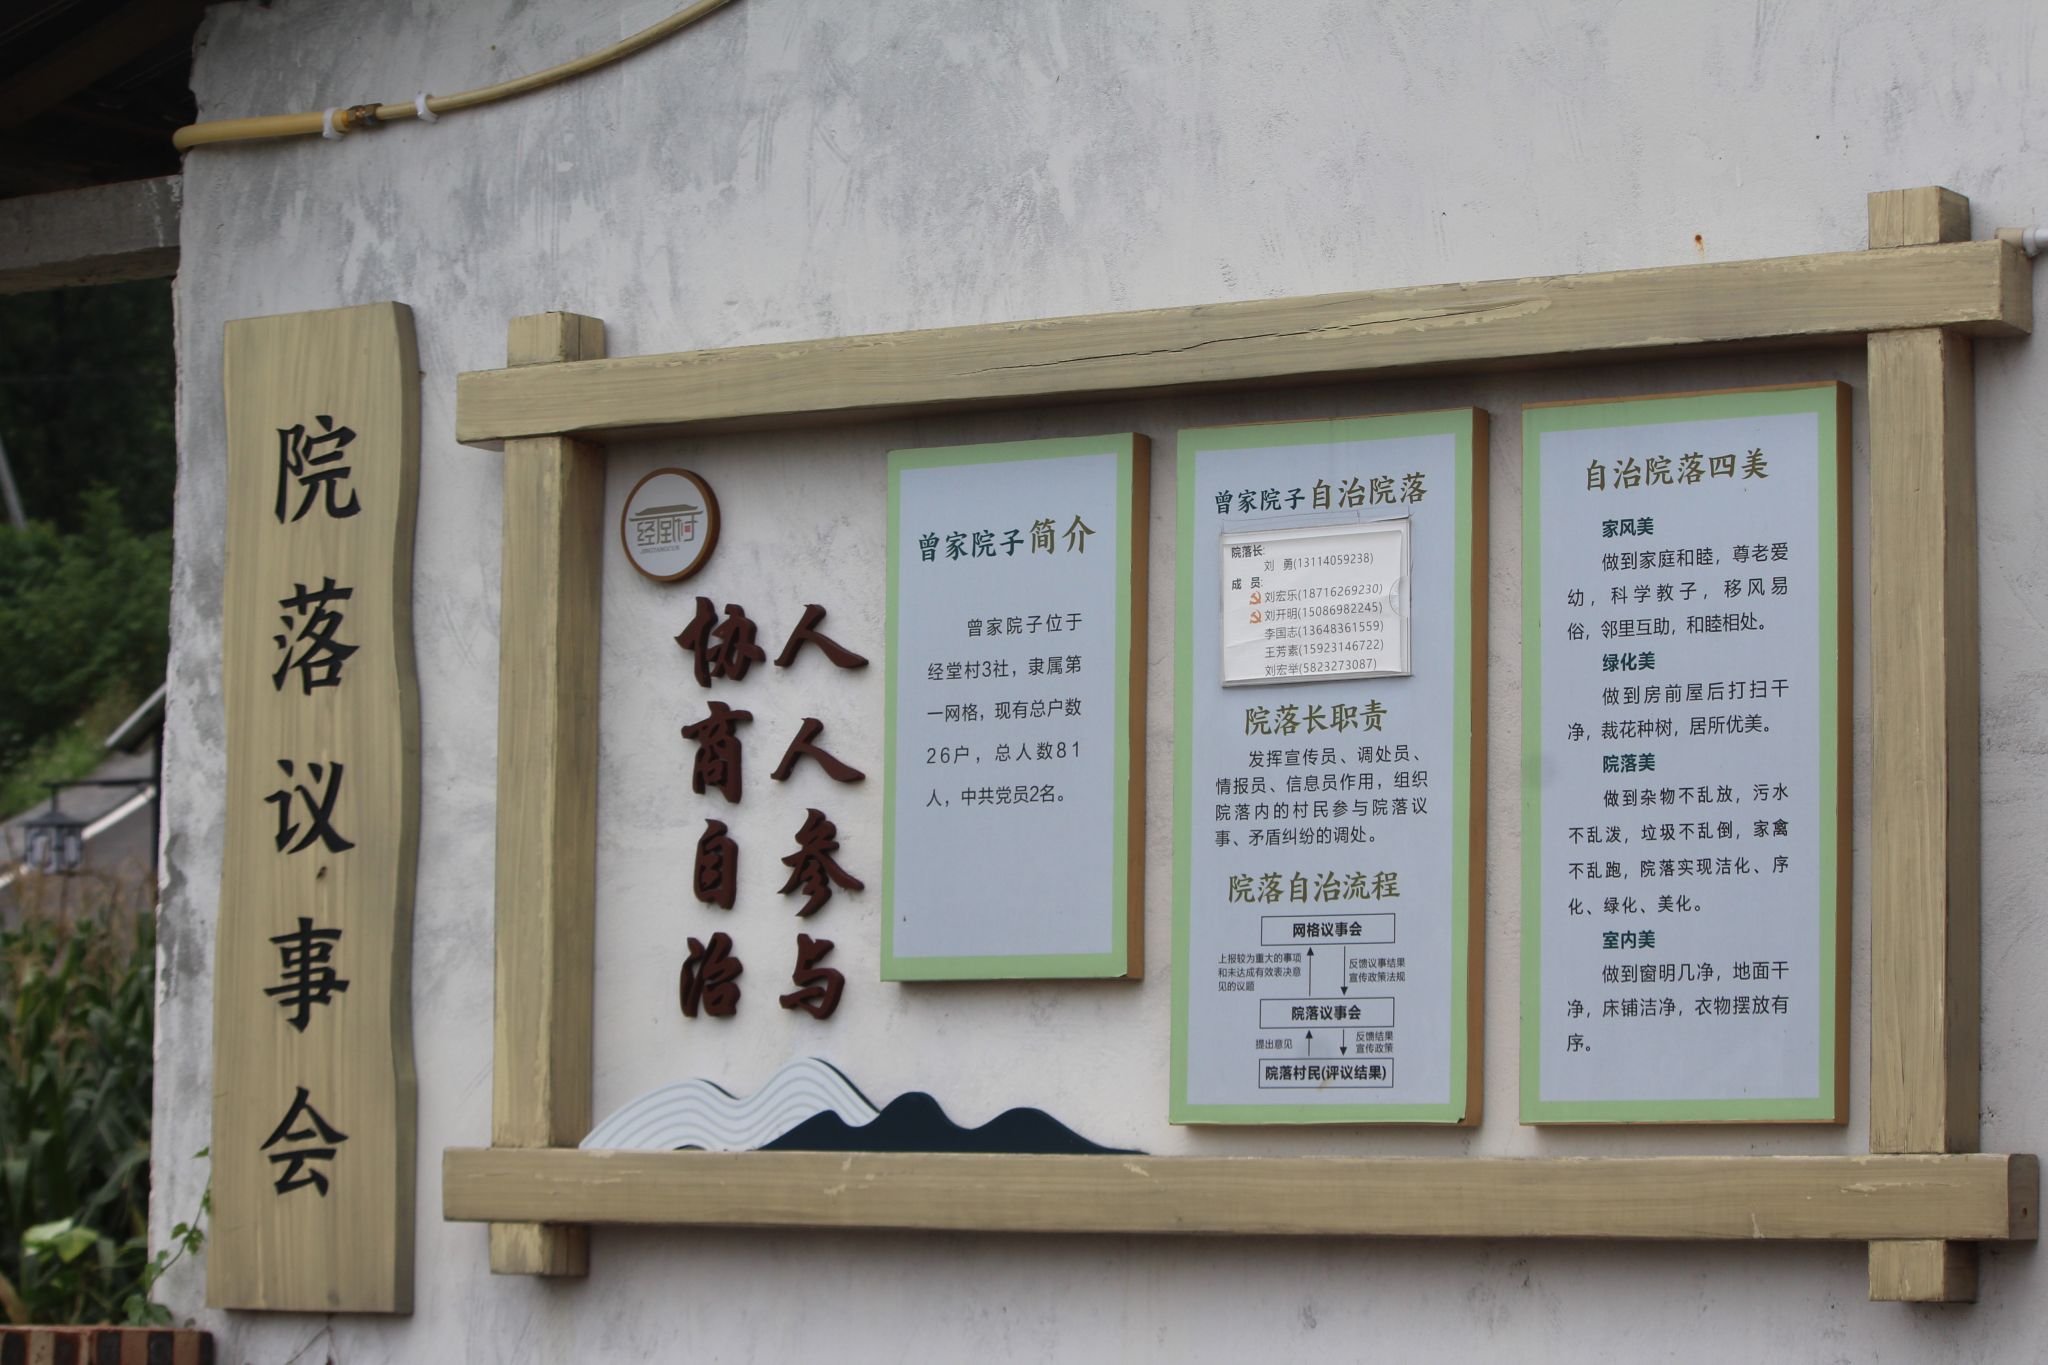 院落议事会
经堂村
JINGTANGCUN
人人参与
协商自治
曾家院子简介
曾家院子位于
经堂村3社，隶属第
一网格，现有总户数
26户，总人数81
人，中共党员2名。
曾家院子自治院落
院落长:
刘 勇(13114059238)
成 员:
刘宏乐(18716269230)
刘开明(15086982245)
李国志(13648361559)
王芳素(15923146722)
刘宏举(5823273087)
院落长职责
发挥宣传员、调处员、
情报员、信息员作用，组织
院落内的村民参与院落议
事、矛盾纠纷的调处。
院落自治流程
网格议事会
上报较为重大的事项
和未达成有效表决意
见的议题
反馈议事结果
宣传政策法规
院落议事会
提出意见
反馈结果
宣传政策
院落村民(评议结果)
自治院落四美
家风美
做到家庭和睦，尊老爱
幼，科学教子，移风易
俗，邻里互助，和睦相处。
绿化美
做到房前屋后打扫干
净，栽花种树，居所优美。
院落美
做到杂物不乱放，污水
不乱泼，垃圾不乱倒，家禽
不乱跑，院落实现洁化、序
化、绿化、美化。
室内美
做到窗明几净，地面干
净，床铺洁净，衣物摆放有
序。